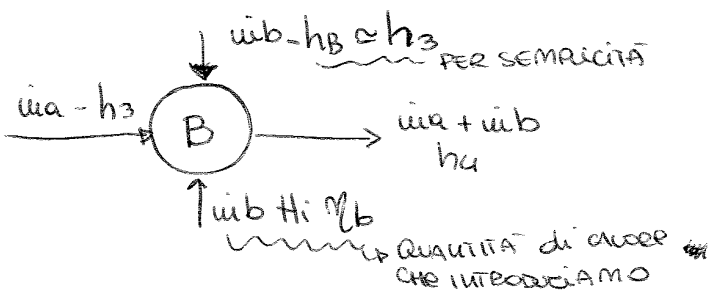 ṁb - hB ≃ h3
PER SEMPLICITÀ
ṁa - h3
B
ṁa + ṁb
h4
ṁb Hi ηb
QUANTITÀ di CALORE
CHE INTRODUCIAMO